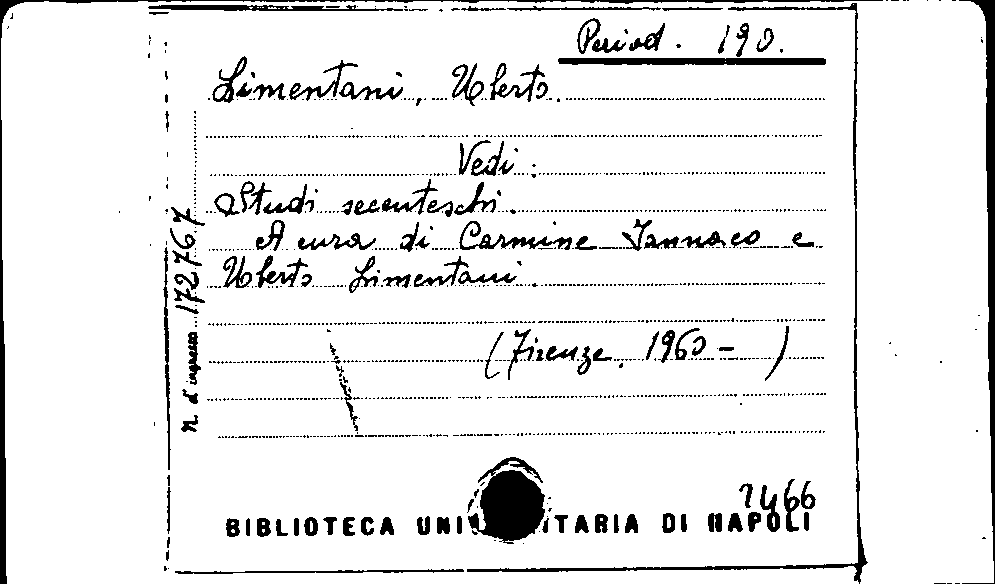 Period. 190.
Limentani, Uberto.
Vedi:
Studi secenteschi.
A cura di Carmine Jannaco e
Uberto Limentani.
(Firenze, 1960 - )
n. d'ingresso 172767
2466
BIBLIOTECA UNI ITARIA DI NAPOLI